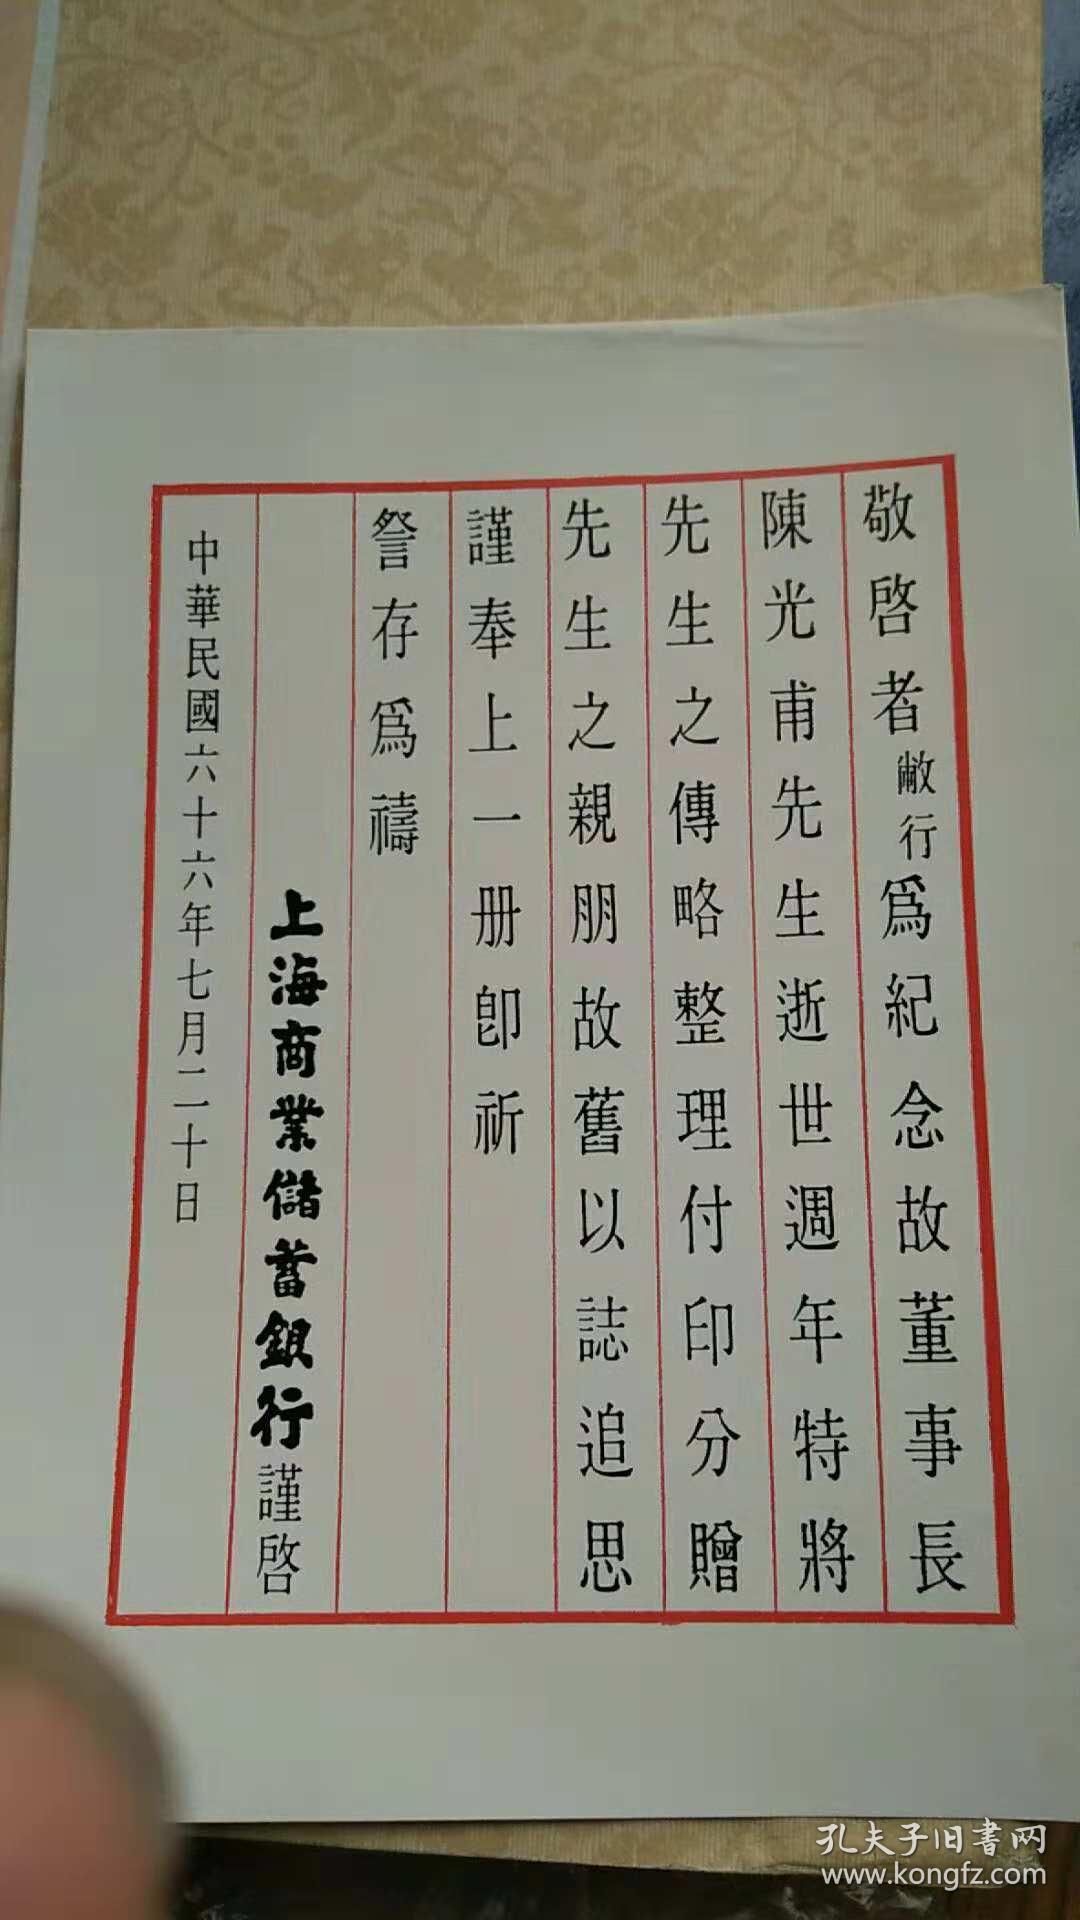 敬啓者敝行爲紀念故董事長
陳光甫先生逝世週年特將
先生之傳略整理付印分贈
先生之親朋故舊以誌追思
謹奉上一册卽祈
詧存爲禱
上海商業儲蓄銀行謹啓
中華民國六十六年七月二十日
孔夫子旧書网
www.kongfz.com